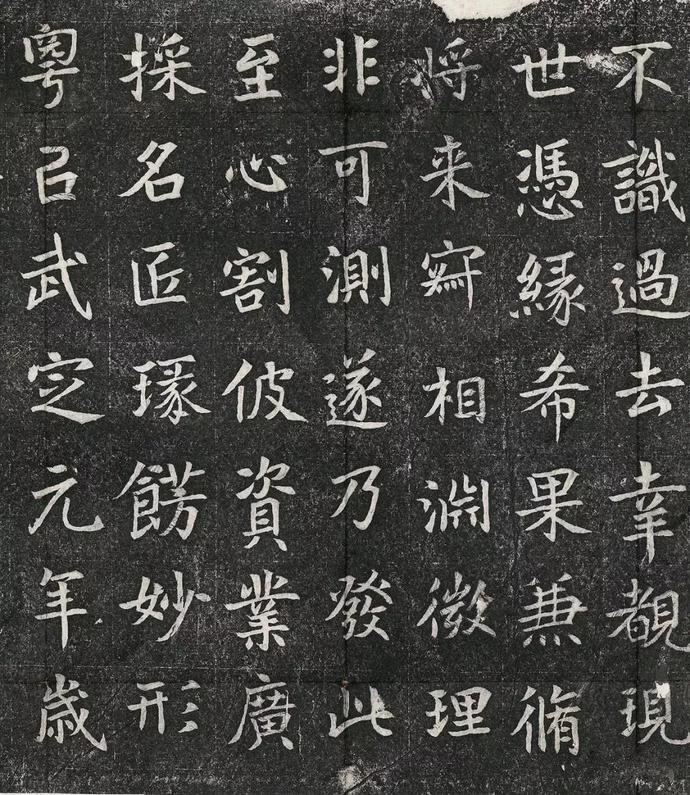 不識過去幸覩現
世憑緣希果兼脩
将来㝛相淵微理
非可測遂乃發此
至心割彼資業廣
採名匠瑑餝妙形
粵以武定元年歲